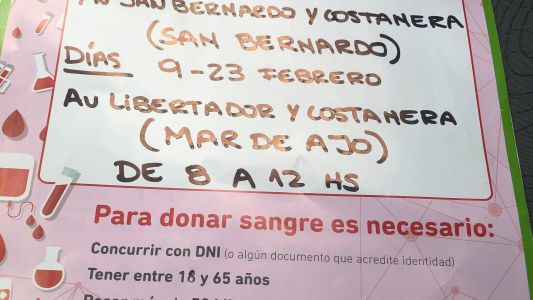 AV SAN BERNARDO Y COSTANERA
(SAN BERNARDO)
DÍAS 9-23 FEBRERO
AV LIBERTADOR Y COSTANERA
(MAR DE AJO)
DE 8 A 12 HS
Para donar sangre es necesario:
Concurrir con DNI (o algún documento que acredite identidad)
Tener entre 18 y 65 años